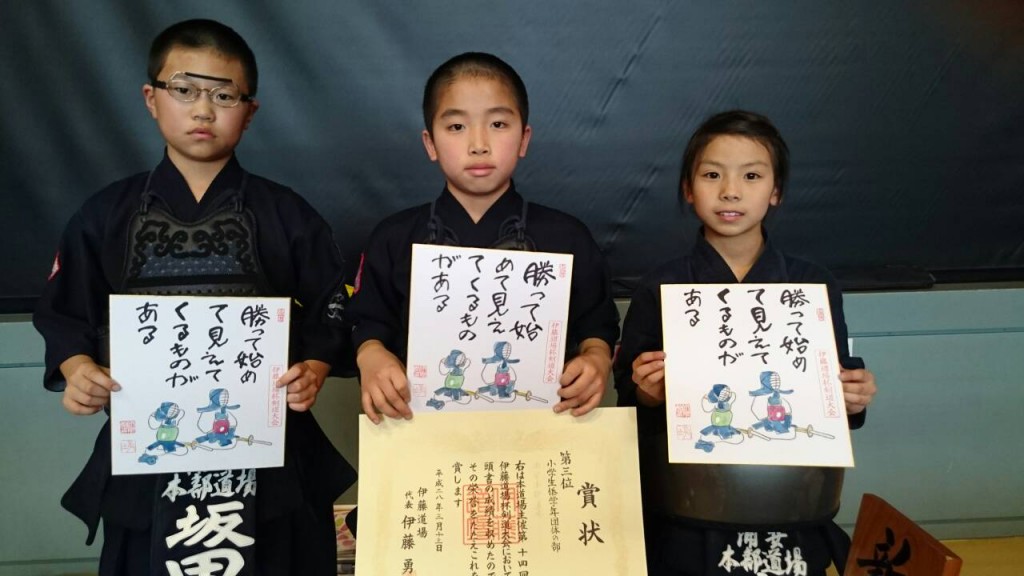 勝って始め
て見えて
くるものが
ある
伊藤道場杯剣道大会
本部道場
坂田
勝って始
めて見え
てくるもの
がある
伊藤道場杯剣道大会
賞状
第三位
小学生低学年団体の部
右は本道場主催第十四回
伊藤道場杯剣道大会において
頭書の成績を収めたので
その栄誉をたたえこれを
賞します
平成二八年二月十三日
伊藤道場
代表 伊藤勇
勝って始め
て見えて
くるものが
ある
伊藤道場杯剣道大会
本部道場